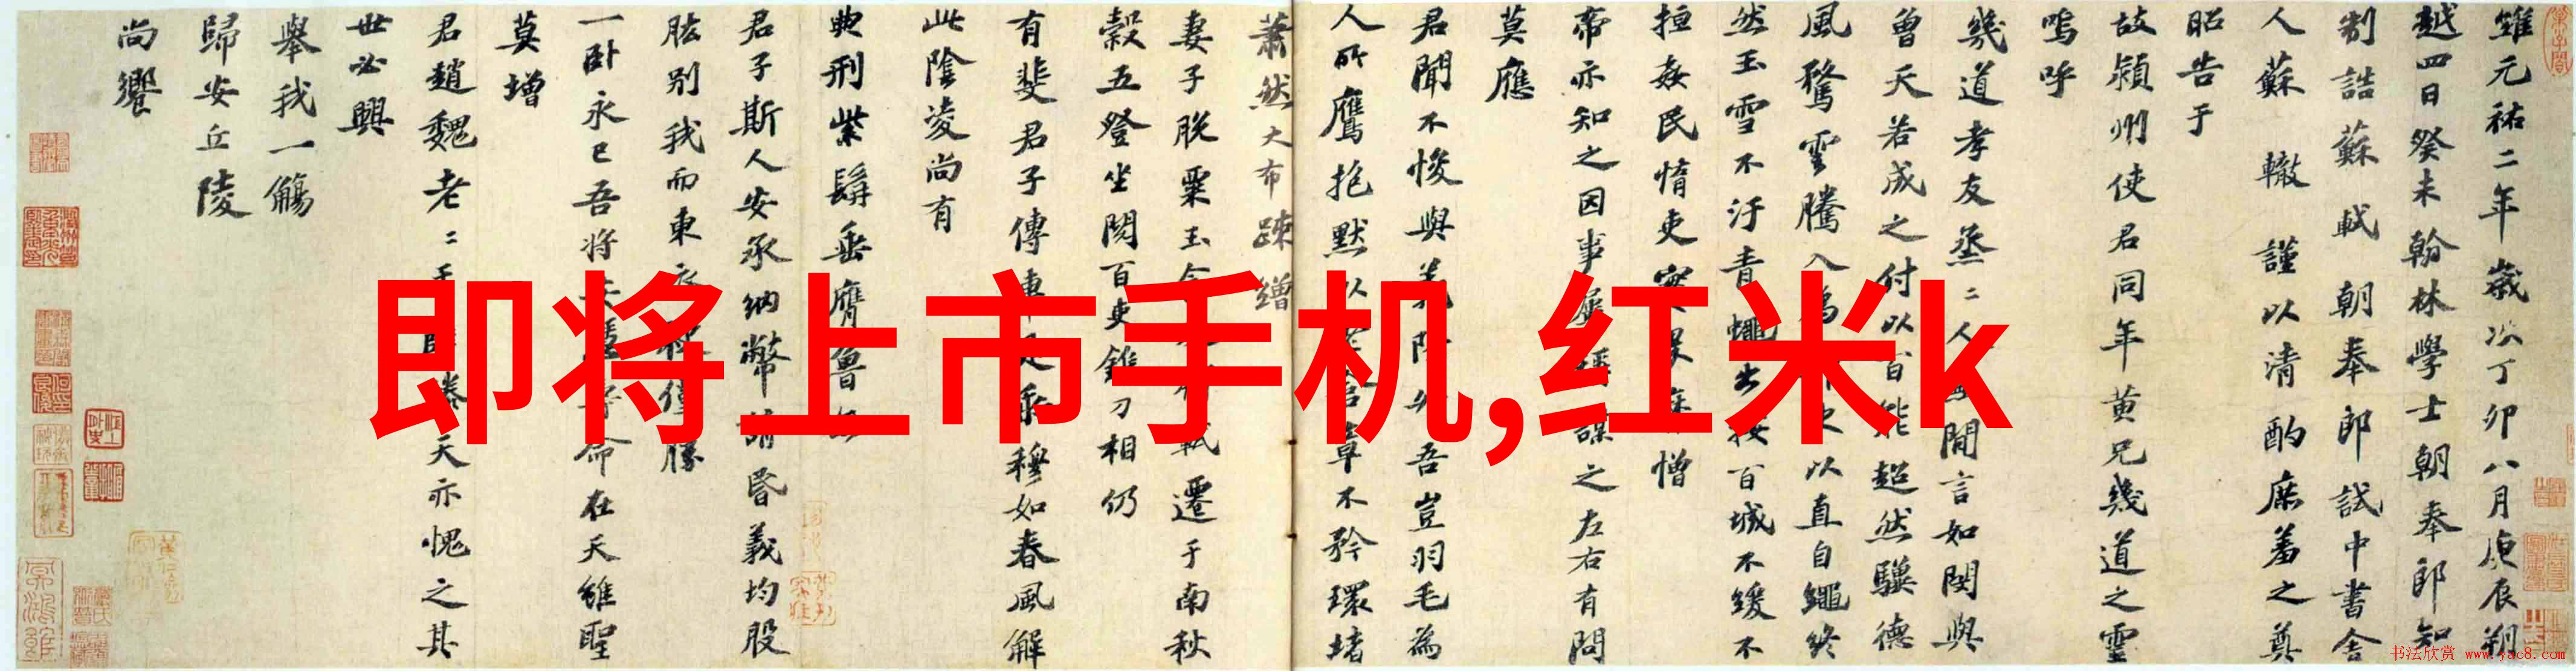 維元祐二年歲次丁卯八月庚辰朔
越四日癸未翰林學士朝奉郎知
制誥蘇軾朝奉郎試中書舍
人蘇轍謹以清酌庶羞之奠
昭告于
故潁州使君同年黃兄幾道之靈
嗚呼
幾道孝友烝二人 閒言如閔與
曾天若成之付以百能超然驥德
風騖雲騰入為 以直自繩終
然玉雪不汙青蠅出按百城不緩不
擅姦民惰吏實畏 憎
帝亦知之因事屢 謀之左右有問
莫應
君聞不悛與義降升吾豈羽毛為
人所鷹抱默以 章不矜環堵
蕭然大布疎繒
妻子脫粟玉 軾遷于南秋
穀五登坐閱百吏錐刀相仍
有斐君子傳車是乘穆如春風解
此陰凌尚有
典刑紫髯垂膺魯
君子斯人安承納幣請昏義均股
肱別我而東衣 僅勝
一卧永已吾將 命在天維聖
莫增
君趙魏老二于 滕天亦愧之其
世必興
舉我一觴
歸安丘陵
尚饗
即将上市手机,红米k
书法欣赏 www.yac8.com